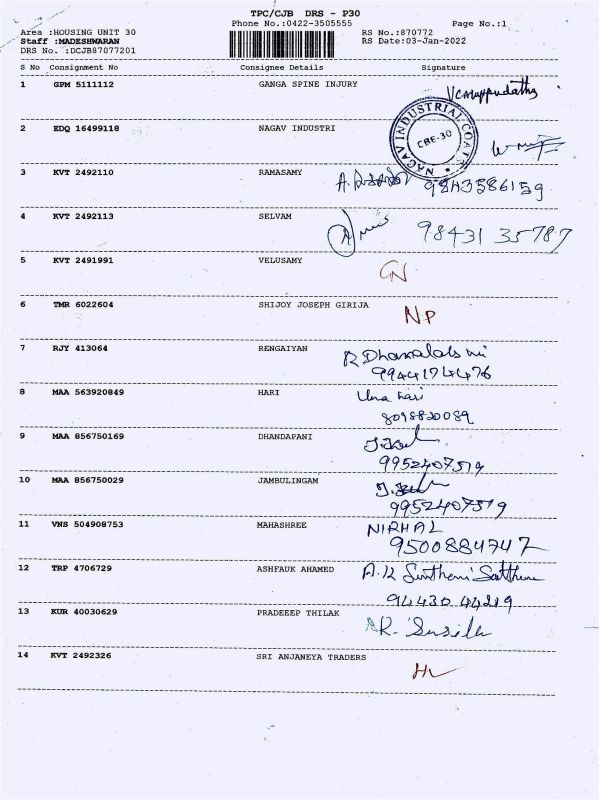 TPC/CJB DRS - P30
Phone No.:0422-3505555 Page No.:1
Area :HOUSING UNIT 30 RS No.:870772
Staff :MADESHWARAN RS Date:03-Jan-2022
DRS No. :DCJB87077201
S No Consignment No Consignee Details Signature
1 GPM 5111112 GANGA SPINE INJURY
2 EDQ 16499118 NAGAV INDUSTRI
NAGAV INDUSTRIAL COATS
CBE-30
3 KVT 2492110 RAMASAMY
9843586159
4 KVT 2492113 SELVAM
98431 35787
5 KVT 2491991 VELUSAMY
CN
6 TMR 6022604 SHIJOY JOSEPH GIRIJA
NP
7 RJY 413064 RENGAIYAN
R Dhanalakshmi
9944174476
8 MAA 563920849 HARI
Uma hari
8098820089
9 MAA 856750169 DHANDAPANI
9952407519
10 MAA 856750029 JAMBULINGAM
9952407519
11 VNS 504908753 MAHASHREE NIRMAL
9500884747
12 TRP 4706729 ASHFAUK AHAMED
94430 44219
13 KUR 40030629 PRADEEEP THILAK
R. Susila
14 KVT 2492326 SRI ANJANEYA TRADERS